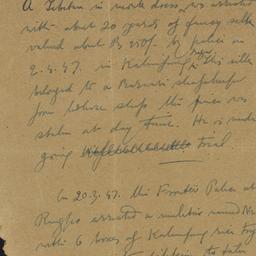 A Tibetan in monk dress was arrested
with about 20 yards of fancy silk
valued about Rs 250/- by police on
2.3.47. in Kalimpong. This silk
belonged to a Marwari shopkeeper
from whose shop the piece was
stolen at day time. He is under
going trial.
On 20.3.47. the Frontier Police at
Rangpo arrested a
with 6 boxes of Kalimpong